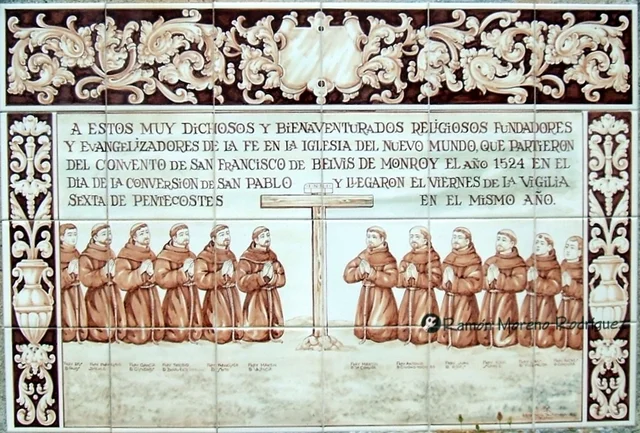 A ESTOS MUY DICHOSOS Y BIENAVENTURADOS RELIGIOSOS FUNDADORES
Y EVANGELIZADORES DE LA FE EN LA IGLESIA DEL NUEVO MUNDO, QUE PARTIERON
DEL CONVENTO DE SAN FRANCISCO DE BELVIS DE MONROY EL AÑO 1524 EN EL
DIA DE LA CONVERSION DE SAN PABLO Y LLEGARON EL VIERNES DE LA VIGILIA
SEXTA DE PENTECOSTES EN EL MISMO AÑO.
Ramón Moreno Rodriguez